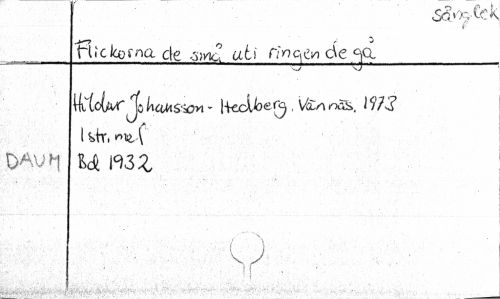 sånglek
Flickorna de små uti ringen de gå
Hildur Johansson-Hedberg, Vännäs, 1973
1 str, mel
DAUM Bd 1932